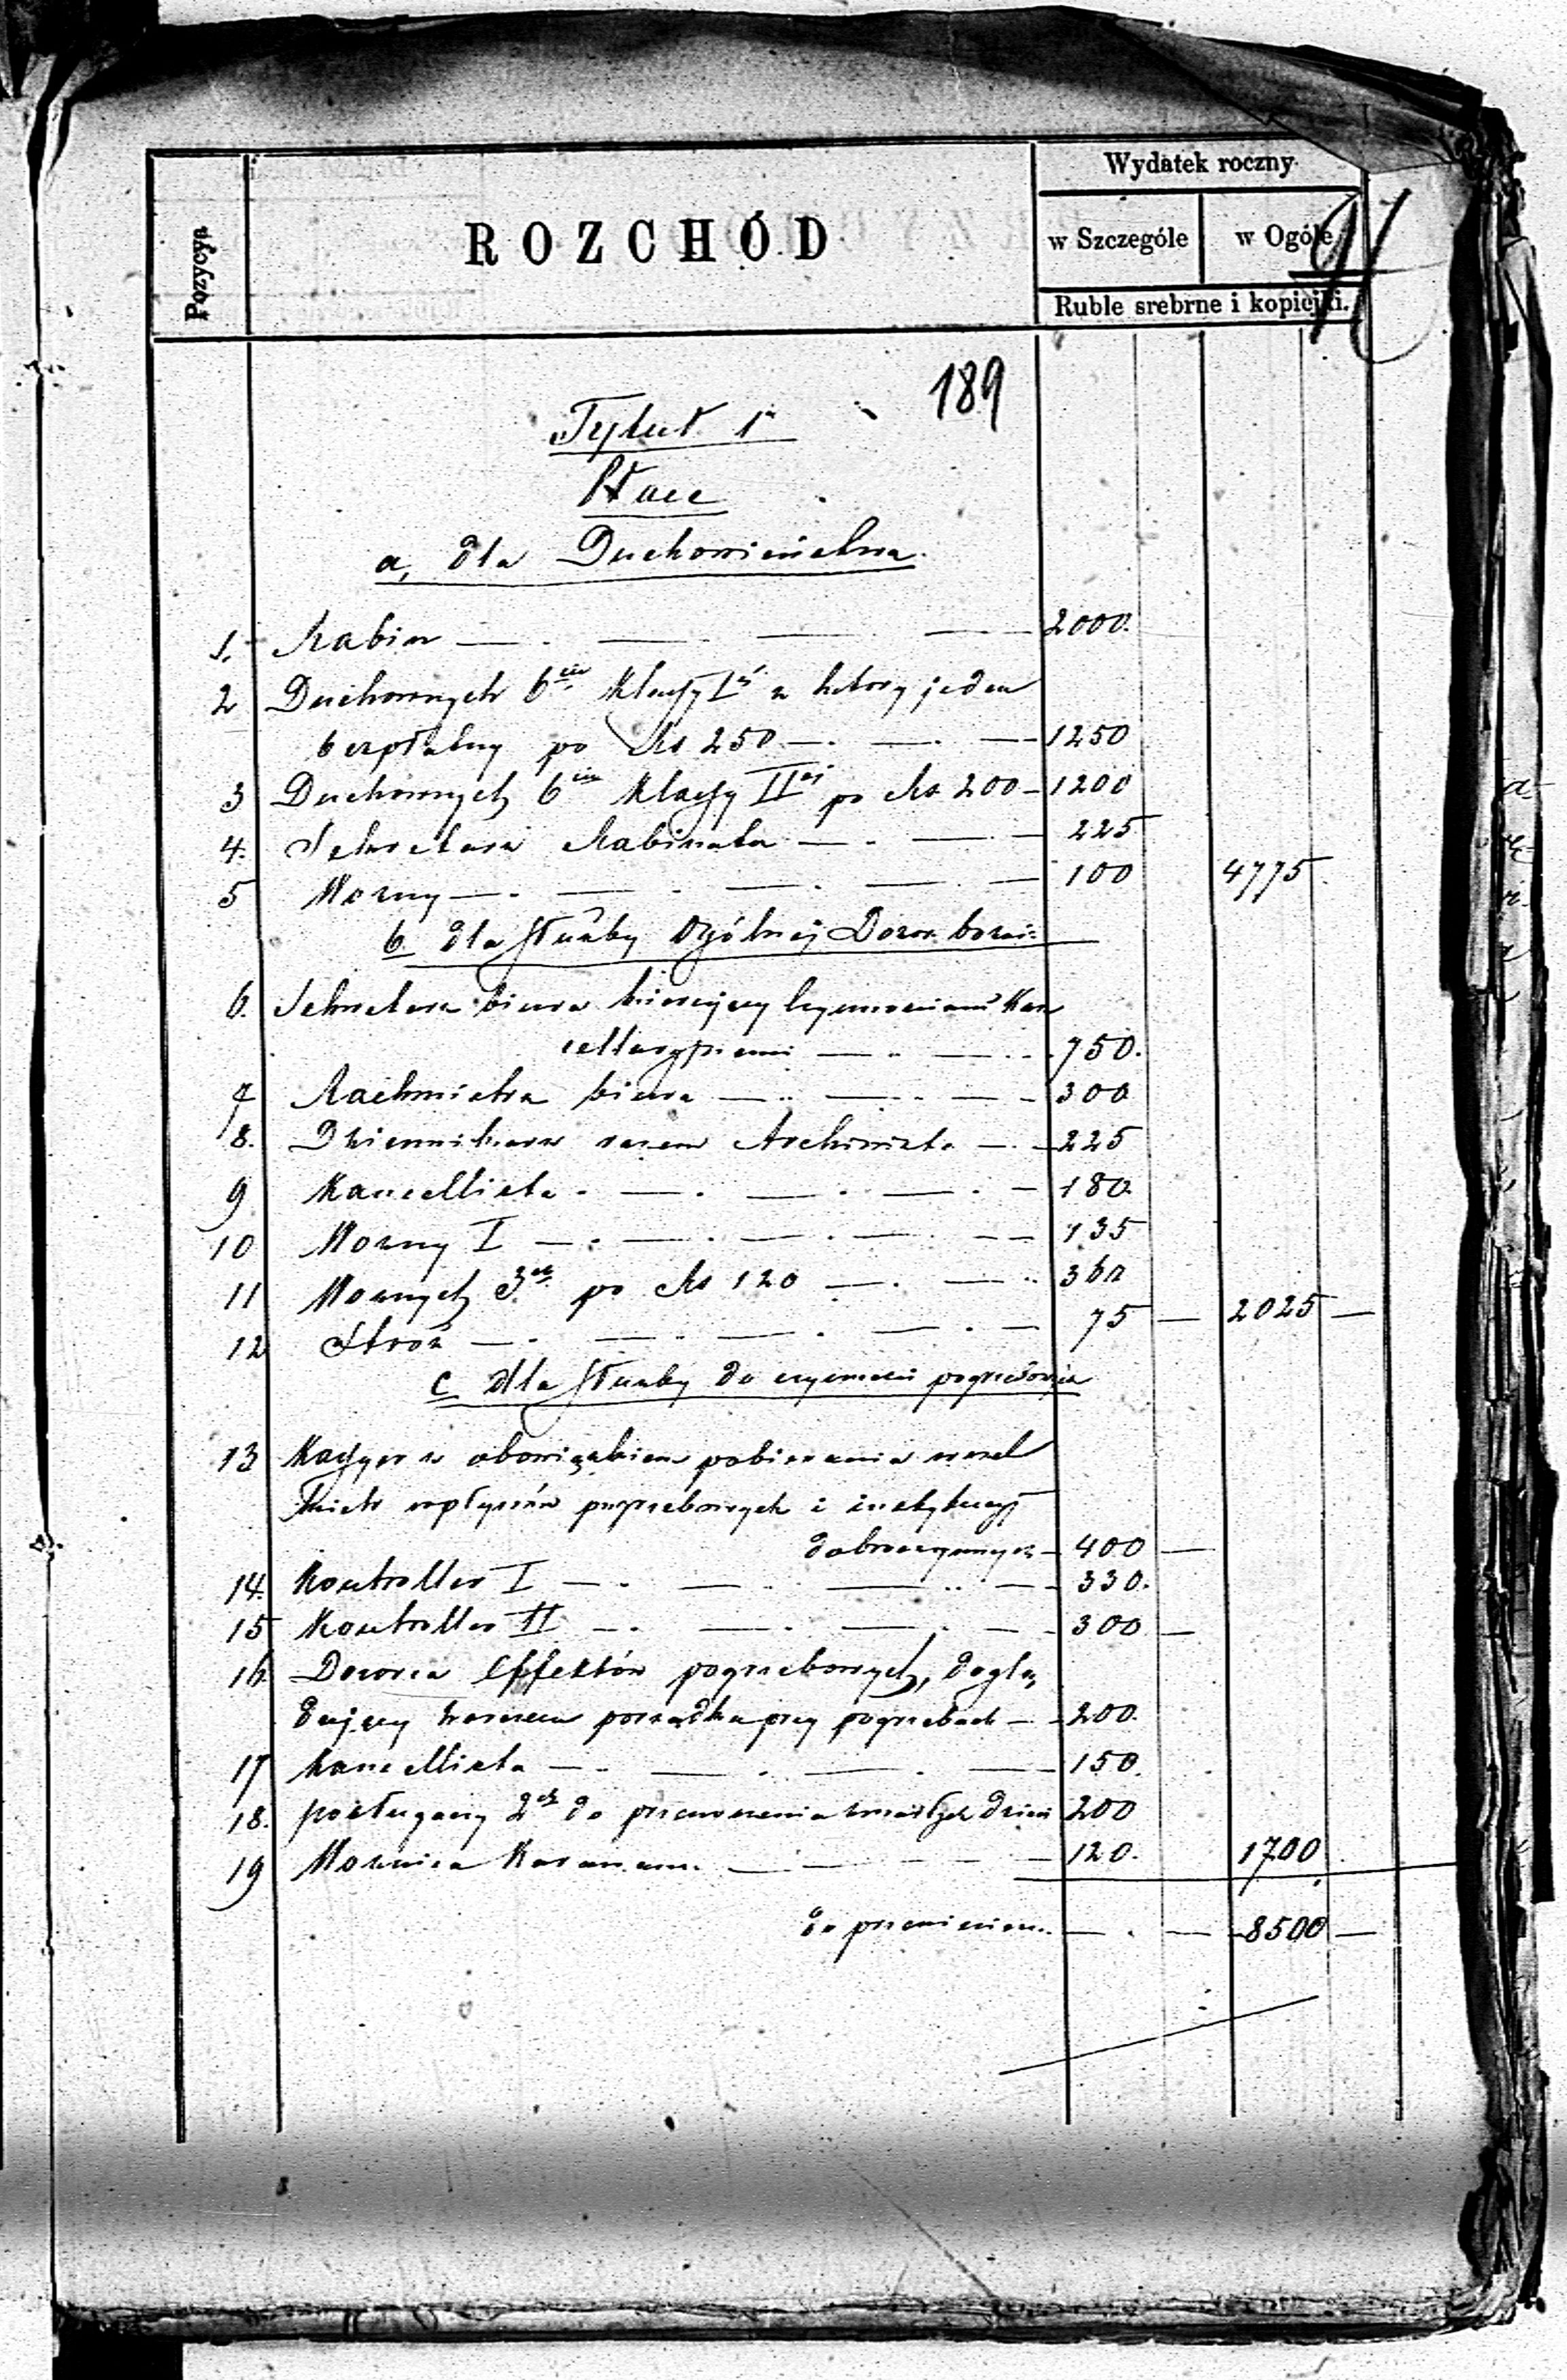 Wydatek roczny
Pozycya
ROZCHÓD
w Szczególe
w Ogóle
Ruble srebrne i kopiejki.
189
Tytuł 1
Płace
a, dla Duchowieństwa.
1. Rabin 2000.
2 Duchownych 6ciu Klassy I z który jeden
bezpłatny po Rs 250 1250
3 Duchownych 6ciu Klassy IIej po Rs 200 1200
4. Sekretarz Rabinatu 225
5 Woźny 100 4775
b dla służby Ogólnej Dozoru bożni:
6. Sekretarz biura kierujący czynnościami Kan
cellaryjnemi 750.
7 Rachmistrz biura 300
8. Dziennikarz razem Archiwista 225
9 Kancellista 180
10 Woźny I 135
11 Woźnych 3ch po Rs 120 360
12 Stróż 75 2025
c dla służby do czynności pogrzebowych
13 Kassyer z obowiązkiem pobierania wszel
kich wpływów pogrzebowych i instytucyj
dobroczynnych 400
14. Kontroller I 330.
15 Kontroller II 300
16 Dozorca Effektów pogrzebowych, doglą
dający zarazem porządku przy pogrzebach 200.
17 Kancellista 150.
18. posługaczy 2ch do przenoszenia zmarłych dzieci 200
19 Woźnica Karawanu 120. 1700
do przeniesien. 8500